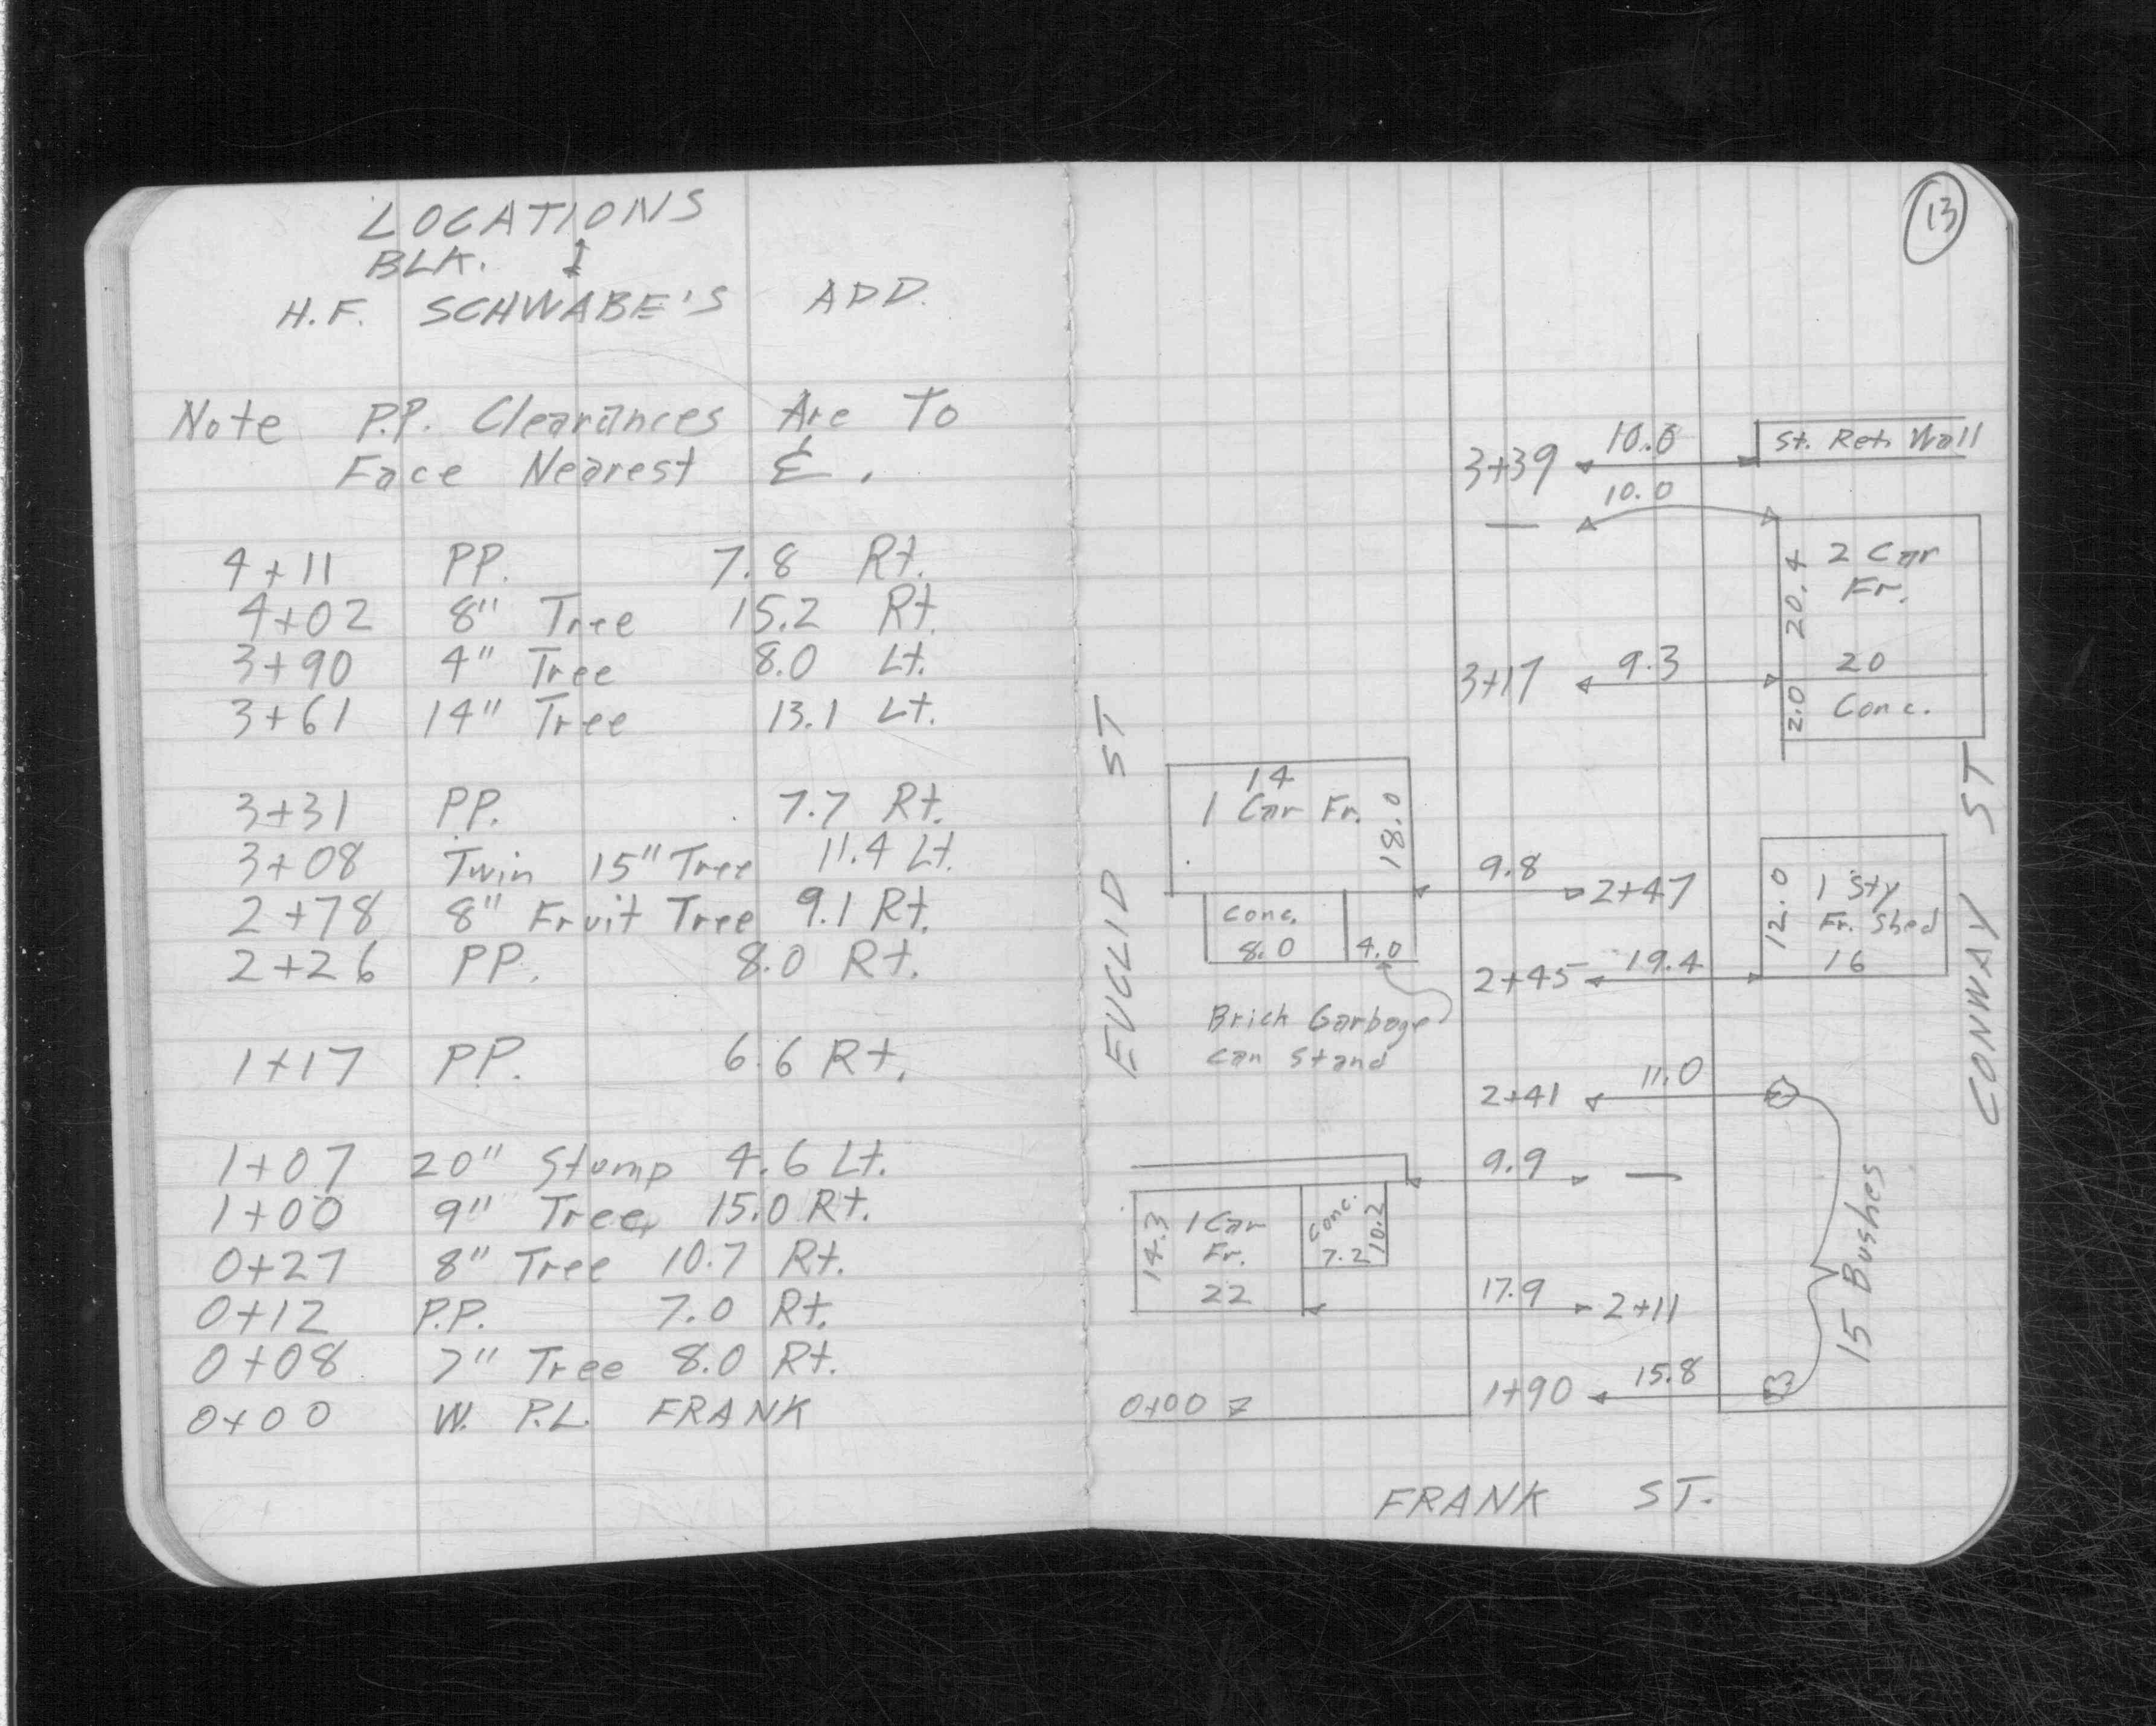 LOCATIONS
BLK. 1
H.F. SCHWABE'S ADD.
Note P.P. Clearances Are To
Face Nearest ℄.
4+11 PP. 7.8 Rt.
4+02 8" Tree 15.2 Rt.
3+90 4" Tree 8.0 Lt.
3+61 14" Tree 13.1 Lt.
3+31 PP. 7.7 Rt.
3+08 Twin 15" Tree 11.4 Lt.
2+78 8" Fruit Tree 9.1 Rt.
2+26 PP. 8.0 Rt.
1+17 PP. 6.6 Rt.
1+07 20" Stump 4.6 Lt.
1+00 9" Tree 15.0 Rt.
0+27 8" Tree 10.7 Rt.
0+12 P.P. 7.0 Rt.
0+08 7" Tree 8.0 Rt.
0+00 W. P.L. FRANK
13
3+39 10.0 St. Ret. Wall
— 10.0
20.4 2 Car
Fr.
20
3+17 9.3
2.0 Conc.
EUCLID ST
CONWAY ST
14
1 Car Fr. 18.0
9.8 2+47
12.0 1 Sty
Fr. Shed
16
Conc.
8.0 4.0
2+45 19.4
Brick Garbage
Can Stand
2+41 11.0
9.9 —
15 Bushes
14.3 1 Car
Fr.
22
Conc.
7.2 10.2
17.9 2+11
1+90 15.8
0+00
FRANK ST.